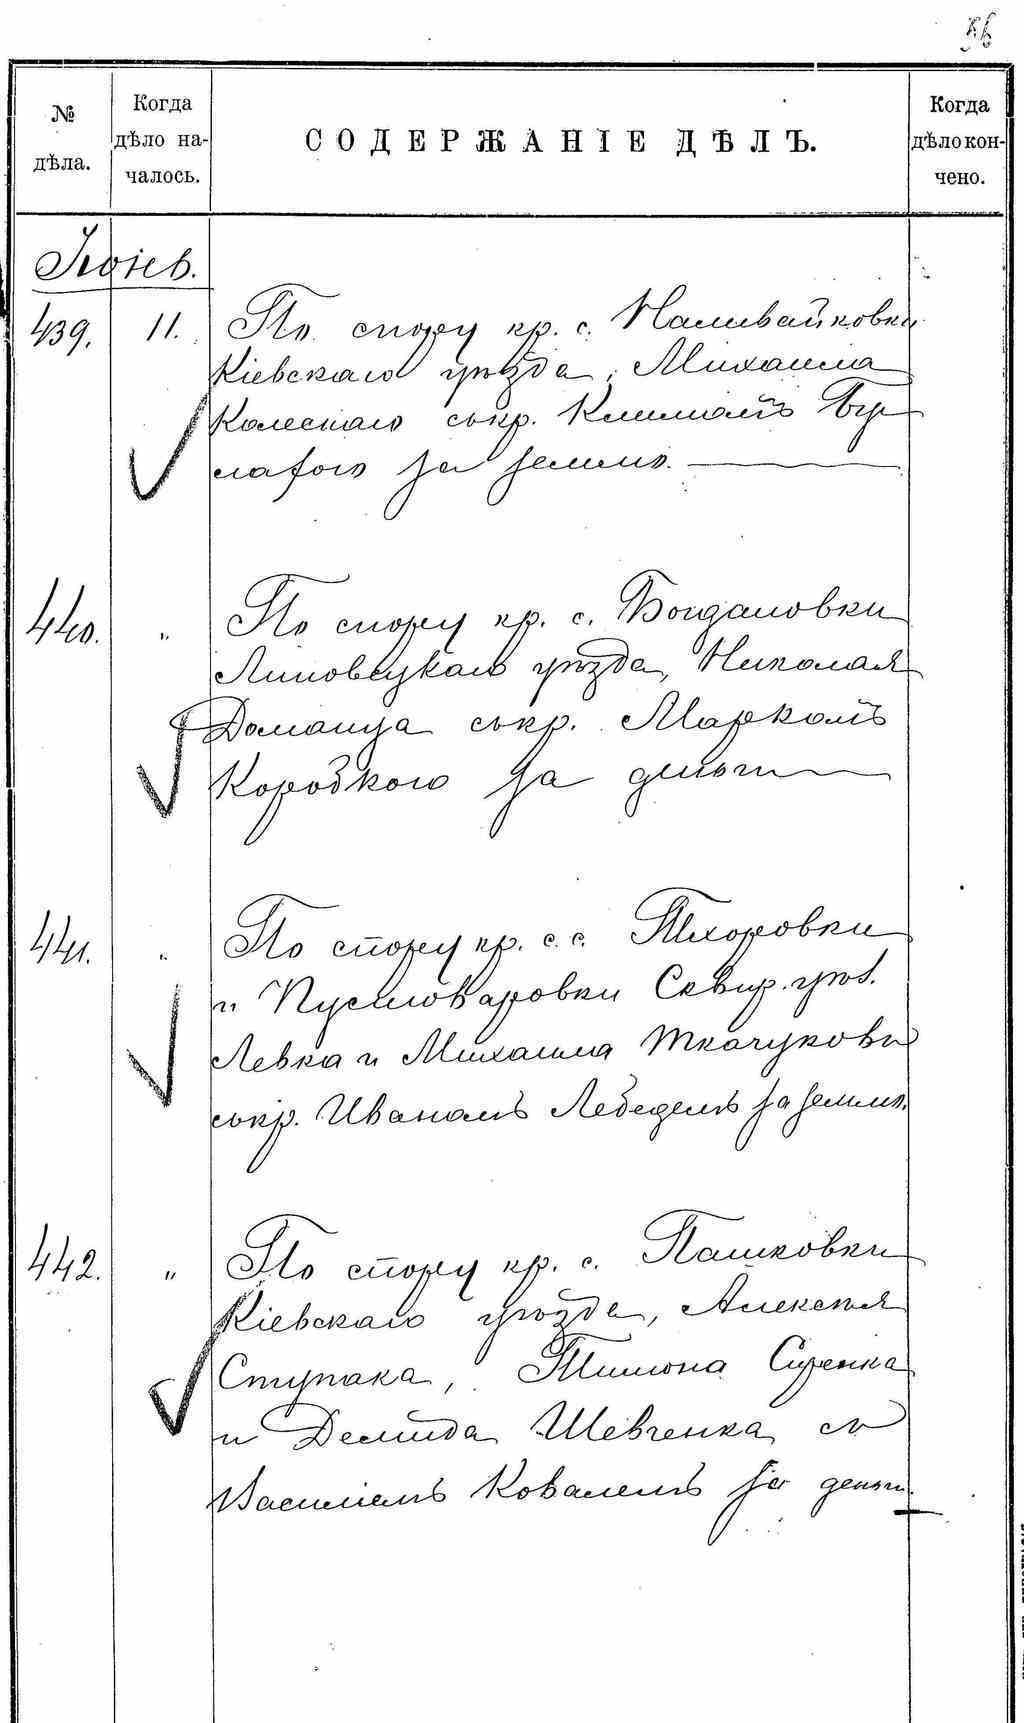 56
№ дѣла.
Когда дѣло на-чалось.
СОДЕРЖАНІЕ ДѢЛЪ.
Когда дѣло кон-чено.
Іюнь.
439. 11. По спору кр. с. Наливайковки
Кіевскаго уѣзда, Михаила
съ кр. Климомъ Бу-
за землю.
440. " По спору кр. с. Богдановки
Липовецкаго уѣзда, Николая
съ кр. Маркомъ
Коробкою за деньги
441. " По спору кр. с.с. Тхоровки
и Пустоваровки Сквир. уѣз.
Левка и Михаила Ткачуковы
съ кр. Иваномъ Лебедемъ за землю.
442. " По спору кр. с. Пашковки
Кіевскаго уѣзда, Алексѣя
Ступака, Тимона Сиренка
и Демида Шевченка съ
Василіемъ Ковалемъ за деньги.